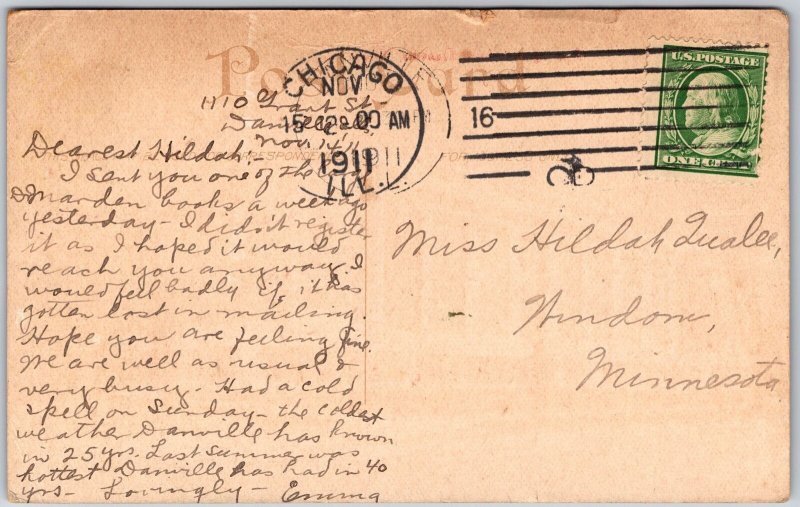 Post Card
CHICAGO
NOV
15 12 00 AM
1911
ILL.
16
U.S. POSTAGE
ONE CENT
1110 Grant St.
Danville,
Nov. 14,
Dearest Hildah:
I sent you one of the
Marden books a week ago
yesterday - I didn't register
it as I hoped it would
reach you anyway. I
would feel badly if it has
gotten lost in mailing.
Hope you are feeling fine.
We are well as usual &
very busy. Had a cold
spell on Sunday - the coldest
weather Danville has known
in 25 yrs. Last summer was
hottest Danville has had in 40
yrs - Lovingly - Emma
Miss Hildah Qualee,
Windom,
Minnesota